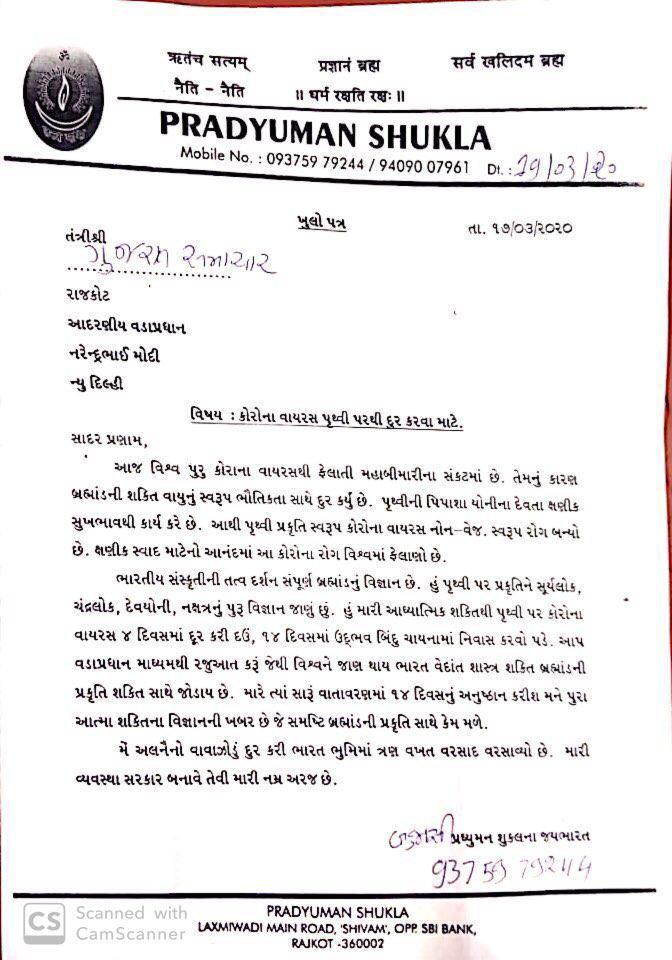 ૐ
ઋતંચ સત્યમ્ પ્રજ્ઞાનં બ્રહ્મ સર્વ ખલિદમ બ્રહ્મ
નૈતિ - નૈતિ ॥ ધર્મ રક્ષતિ રક્ષઃ ॥
PRADYUMAN SHUKLA
Mobile No. : 093759 79244 / 94090 07961 Dt. : 19/03/20
ખુલો પત્ર
તા. ૧૭/૦૩/૨૦૨૦
તંત્રીશ્રી
ગુજરાત સમાચાર
રાજકોટ
આદરણીય વડાપ્રધાન
નરેન્દ્રભાઈ મોદી
ન્યુ દિલ્હી
વિષય : કોરોના વાયરસ પૃથ્વી પરથી દુર કરવા માટે.
સાદર પ્રણામ,
આજ વિશ્વ પુરુ કોરાના વાયરસથી ફેલાતી મહાબીમારીના સંકટમાં છે. તેમનું કારણ
બ્રહ્માંડની શકિત વાયુનું સ્વરૂપ ભૌતિકતા સાથે દુર કર્યું છે. પૃથ્વીની પિપાશા યોનીના દેવતા ક્ષણીક
સુખભાવથી કાર્ય કરે છે. આથી પૃથ્વી પ્રકૃતિ સ્વરૂપ કોરોના વાયરસ નોન-વેજ. સ્વરૂપ રોગ બન્યો
છે. ક્ષણીક સ્વાદ માટેનો આનંદમાં આ કોરોના રોગ વિશ્વમાં ફેલાણો છે.
ભારતીય સંસ્કૃતીની તત્વ દર્શન સંપૂર્ણ બ્રહ્માંડનું વિજ્ઞાન છે. હું પૃથ્વી પર પ્રકૃતિને સૂર્યલોક,
ચંદ્રલોક, દેવયોની, નક્ષત્રનું પુરૂ વિજ્ઞાન જાણું છું. હું મારી આધ્યાત્મિક શકિતથી પૃથ્વી પર કોરોના
વાયરસ ૪ દિવસમાં દૂર કરી દઉં, ૧૪ દિવસમાં ઉદ્દભવ બિંદુ ચાયનામાં નિવાસ કરવો પડે. આપ
વડાપ્રધાન માધ્યમથી રજુઆત કરૂં જેથી વિશ્વને જાણ થાય ભારત વેદાંત શાસ્ત્ર શકિત બ્રહ્માંડની
પ્રકૃતિ શકિત સાથે જોડાય છે. મારે ત્યાં સારૂં વાતાવરણમાં ૧૪ દિવસનું અનુષ્ઠાન કરીશ મને પુરા
આત્મા શકિતના વિજ્ઞાનની ખબર છે જે સમષ્ટિ બ્રહ્માંડની પ્રકૃતિ સાથે કેમ મળે.
મેં અલનૈનો વાવાઝોડું દુર કરી ભારત ભુમિમાં ત્રણ વખત વરસાદ વરસાવ્યો છે. મારી
વ્યવસ્થા સરકાર બનાવે તેવી મારી નમ્ર અરજ છે.
પ્રધ્યુમન શુકલના જયભારત
93759 79244
CS Scanned with
CamScanner
PRADYUMAN SHUKLA
LAXMIWADI MAIN ROAD, 'SHIVAM', OPP. SBI BANK,
RAJKOT -360002